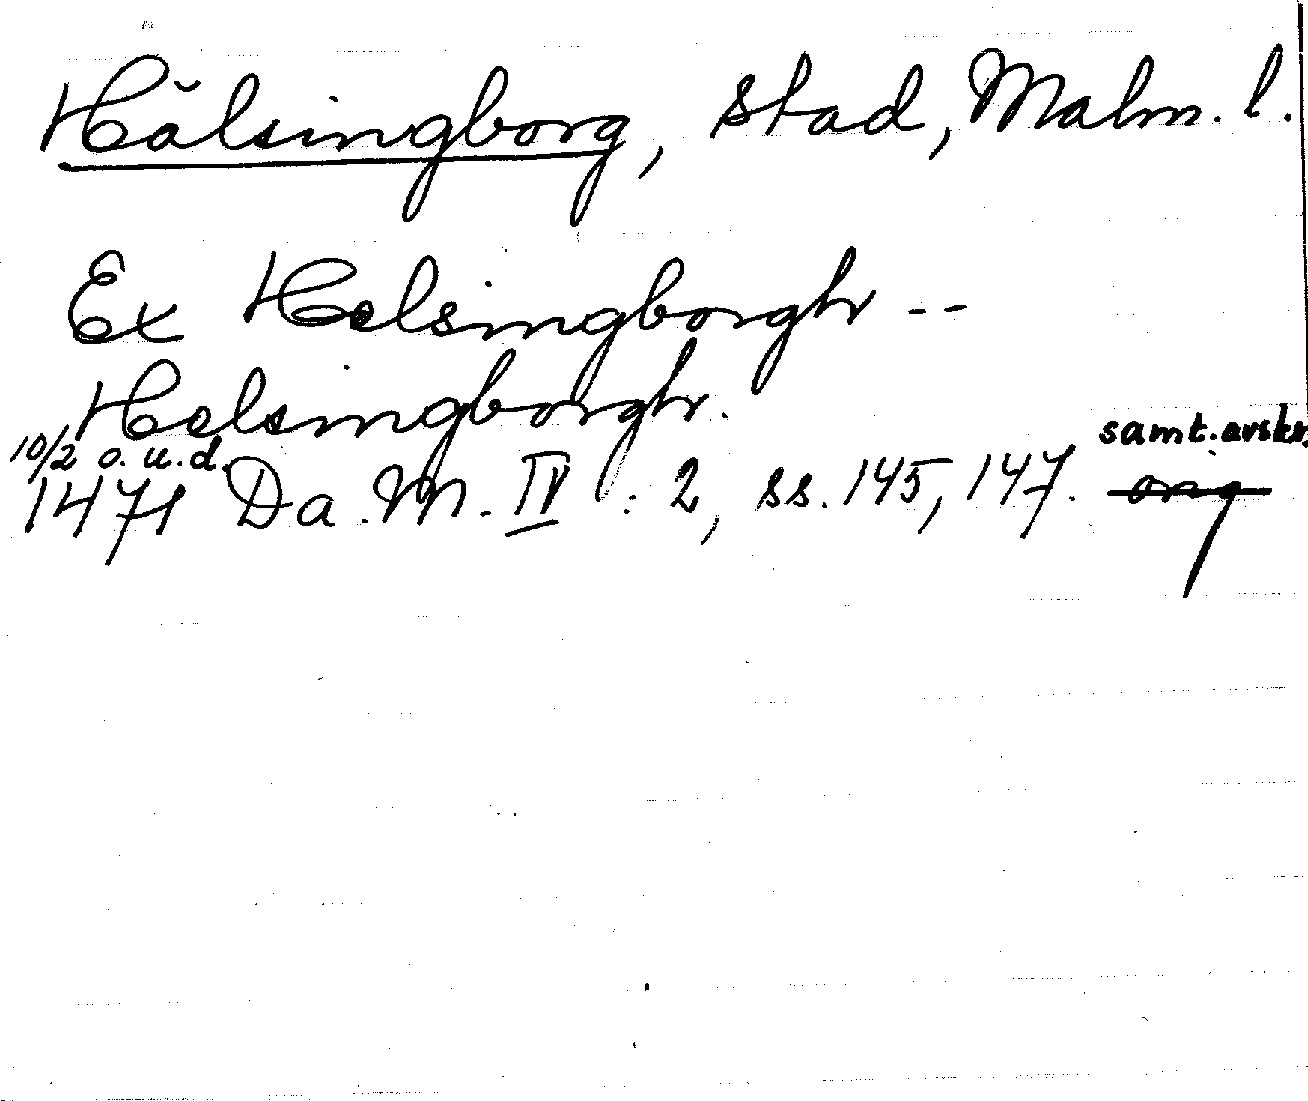 Hälsingborg, stad, Malm. l.
Ex Helsingborgh --
Helsingborgh.
10/2 o. u. d.
samt. avskr.
1471 Da. M. IV : 2, ss. 145, 147. orig